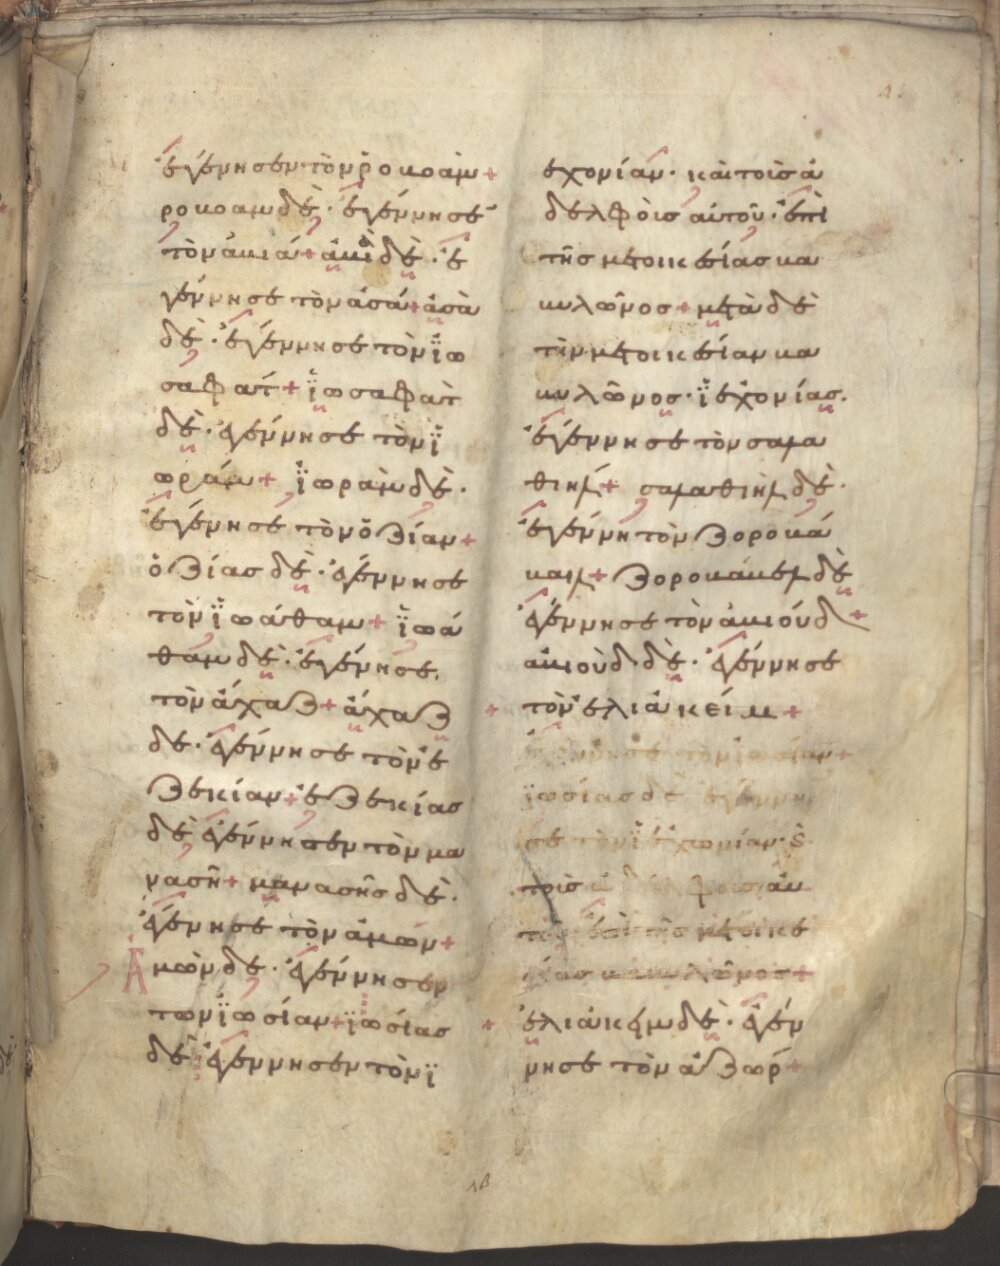 ἐγέννησεν τὸν ῥοβοάμ +
ροβοαμ δὲ · ἐγέννησε
τὸν ἀβιά + ἀβιὰ δὲ · ἐ
γέννησε τὸν ἀσά + ἀσὰ
δὲ · ἐγέννησε τὸν ἰω
σαφατ + ἰωσαφὰτ
δὲ · ἐγέννησε τὸν ἰ
ωράμ + ἰωρὰμ δὲ ·
ἐγέννησε τὸν ὀζίαν +
ὀζίας δὲ · ἐγέννησε
τὸν ἰωάθαμ + ἰωά
θαμ δὲ · ἐγέννησε
τὸν ἀχαζ + ἀχαζ
δὲ · ἐγέννησε τὸν ἐ
ζεκίαν + ἐζεκίας
δὲ ἐγέννησεν τὸν μα
νασῆ + μανασῆς δὲ ·
ἐγέννησε τὸν ἀμών +
Ἀμὼν δὲ · ἐγέννησεν
των ἰωσίαν + ἰωσίας
δὲ ἐγέννησεν τὸν ἰ
εχονίαν · καὶ τοῖσ ἀ
δελφοῖσ αὐτοῦ · ἐπὶ
τῆς μετοικεσίας βα
βυλῶνος + μετὰ δὲ
τὴν μετοικεσίαν βα
βυλῶνος · ἰεχονίας ·
ἐγέννησε τὸν σαλα
θιηλ + σαλαθιὴλ δὲ ·
ἐγέννη τὸν ζοροβά
βαιλ + ζοροβάβελ δὲ
ἐγέννησε τὸν ἀβιούδ +
ἀβιοὺδ δὲ · ἐγέννησε
+ τὸν ἐλιἀκείμ +
ἐγέννησε τὸν ἰωσίαν +
ἰωσίας δὲ ἐγέννη
σε τὸν ἰεχωνίαν ·
τοῖσ ἀδελφοῖσ ἀυ
ἐπὶ τῆς μετοικε
σίας βαβυλῶνος +
+ ἐλιἀκὴμ δὲ · ἐγέν
νησε τὸν ἀζωρ +